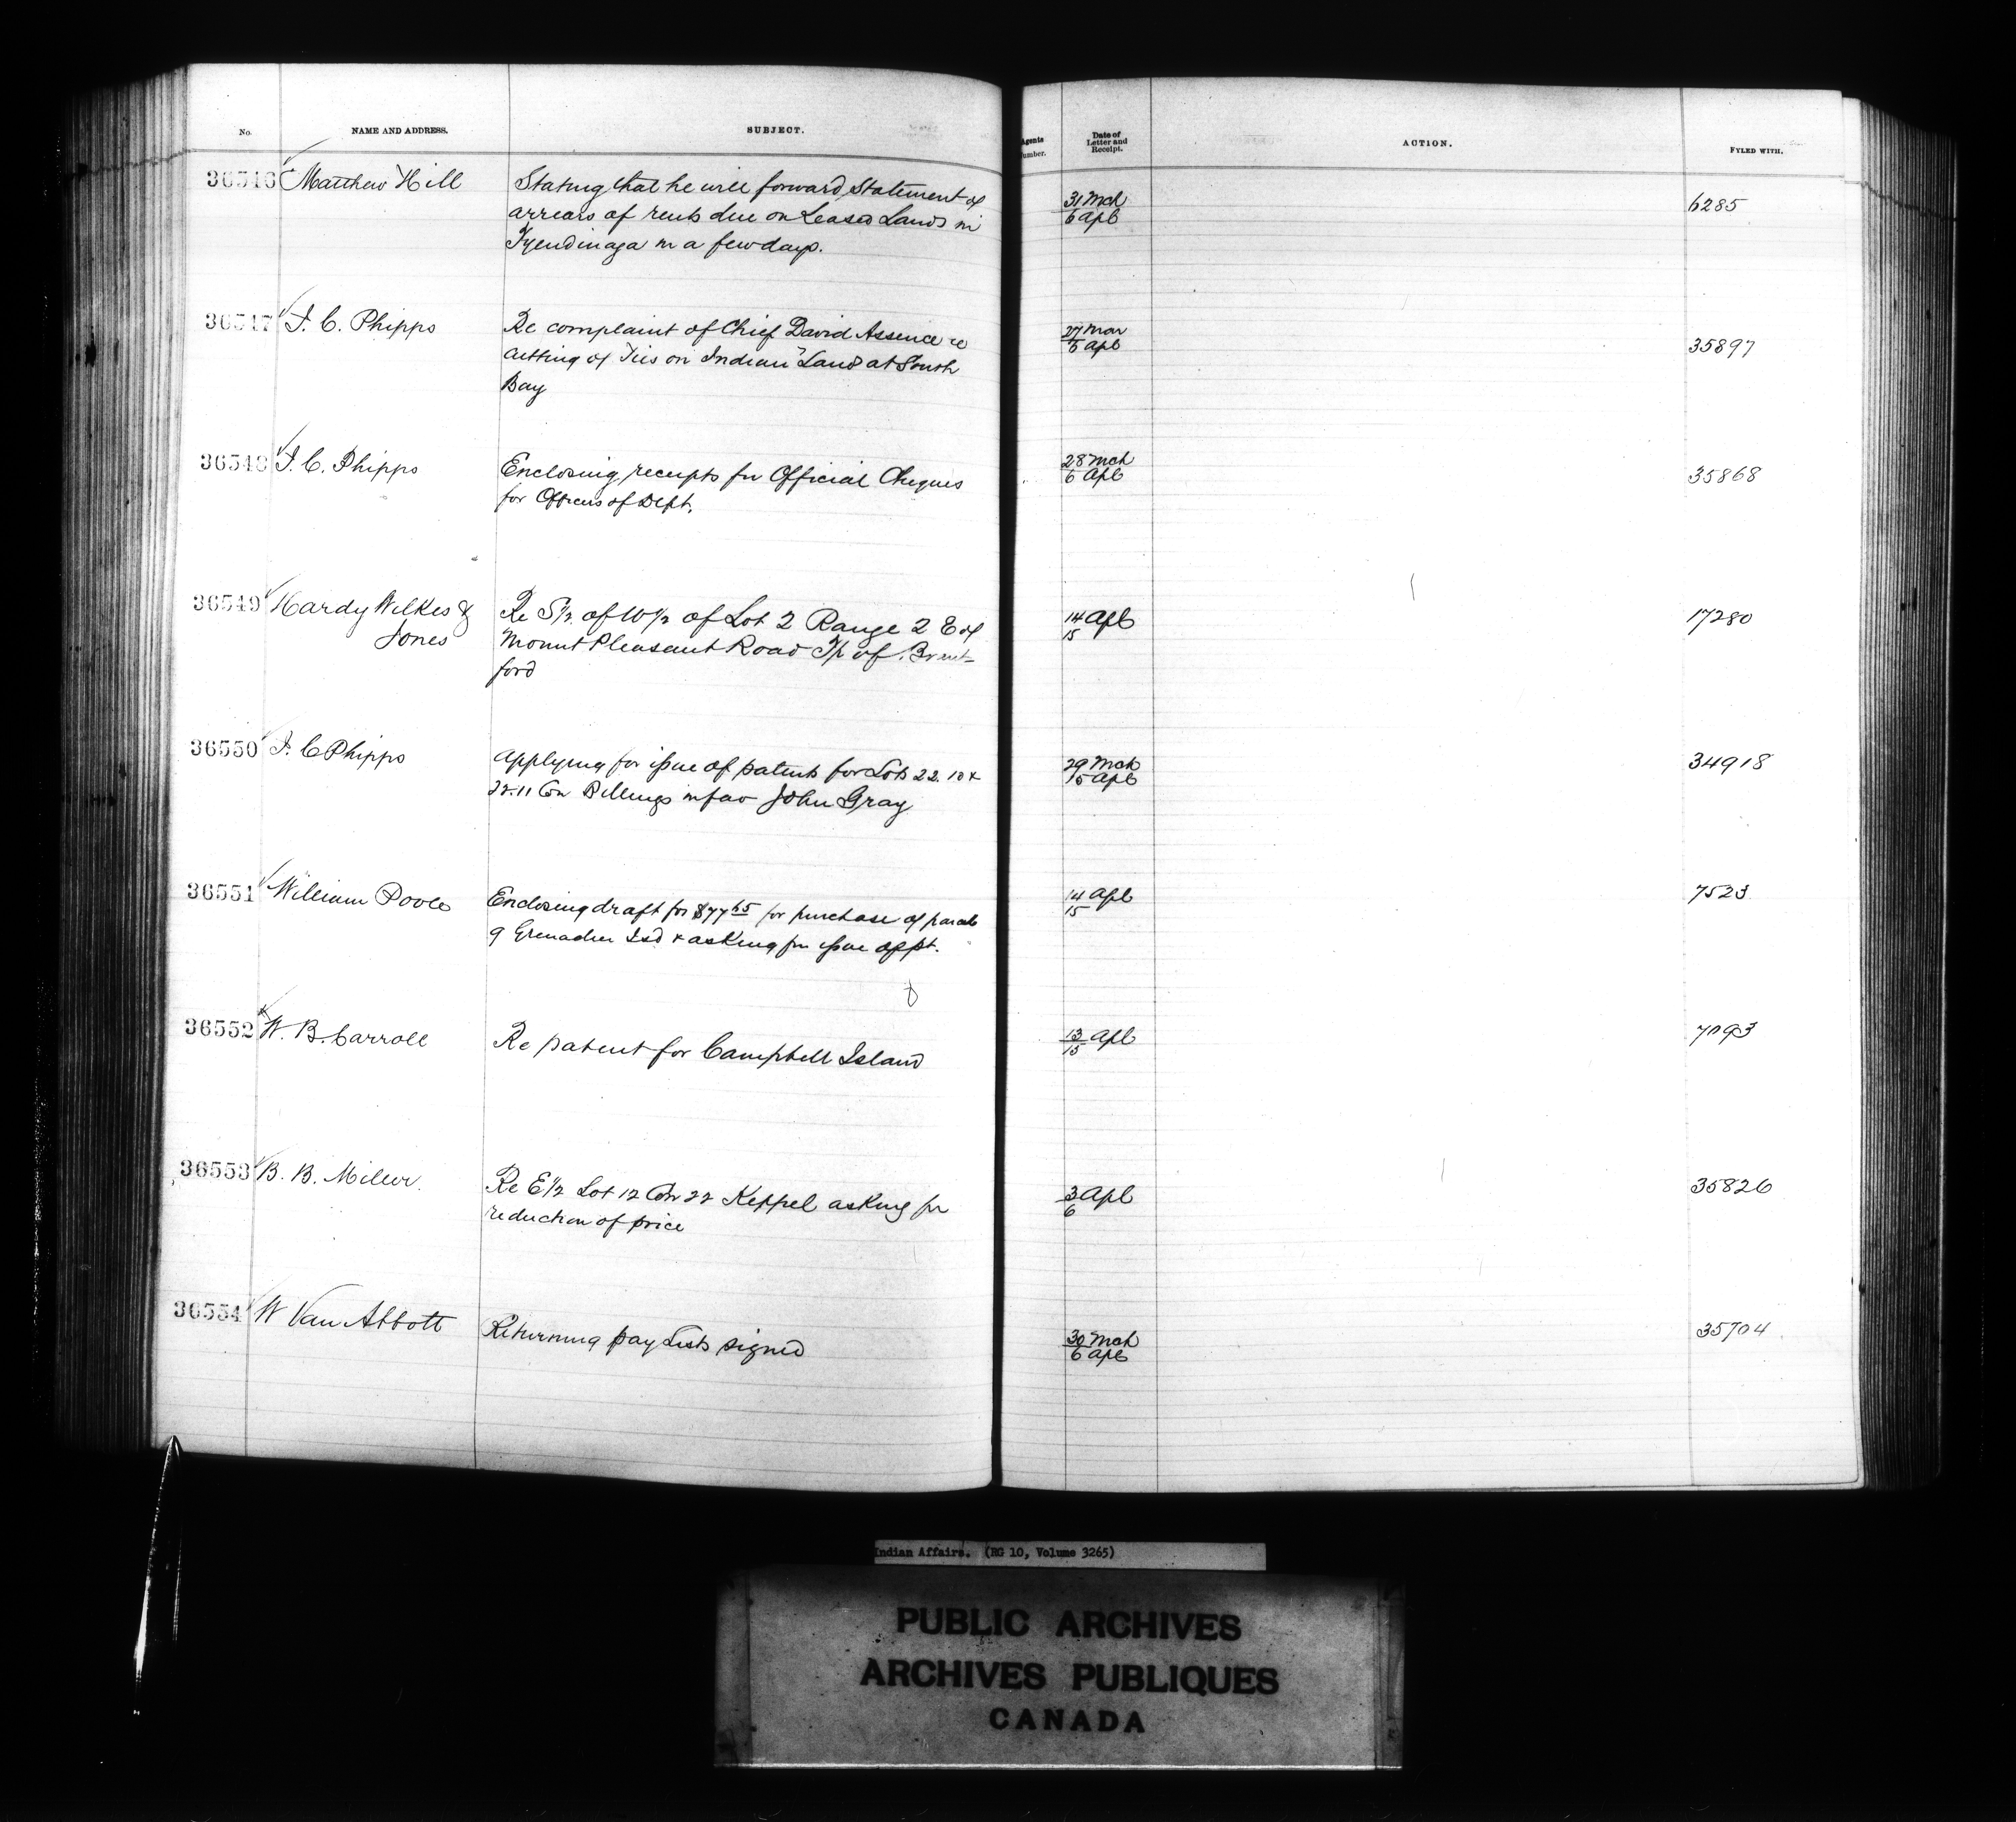 No.
NAME AND ADDRESS.
SUBJECT.
Agents
Number.
Date of
Letter and
Receipt.
ACTION.
FYLED WITH.
36546 Matthew Hill
Stating that he will forward Statement of
arrears of rents due on Leased Lands in
Tyendinaga in a few days.
31 Mch
6 Apl
6285
36547 J. C. Phipps
Re complaint of Chief David Assence re
cutting of Ties on Indian Land at South
Bay
27 Mar
6 Apl
35897
36548 J. C. Phipps
Enclosing receipts for Official Cheques
for Officers of Dept.
28 Mch
6 Apl
35868
36549 Hardy Wilkes &
Jones
Re S½ of W½ of Lot 2 Range 2 E of
Mount Pleasant Road Tp of Brant-
ford
14 Apl
15
17280
36550 J. C Phipps
Applying for issue of patents for Lots 22. 10 &
22. 11 Con Billings in fav John Gray
29 Mch
15 Apl
34918
36551 William Poole
Enclosing draft for $77 65 for purchase of parcel
9 Grenadier Isd & asking for issue of pt.
14 Apl
15
7523
36552 W. B. Carroll
Re patent for Campbell Island
13 Apl
15
7093
36553 B. B. Miller.
Re E½ Lot 12 Con 22 Keppel asking for
reduction of price
3 Apl
6
35826
36554 W Van Abbott
Returning pay Lists signed
30 Mch
6 Apl
35704
Indian Affairs. (RG 10, Volume 3265)
PUBLIC ARCHIVES
ARCHIVES PUBLIQUES
CANADA